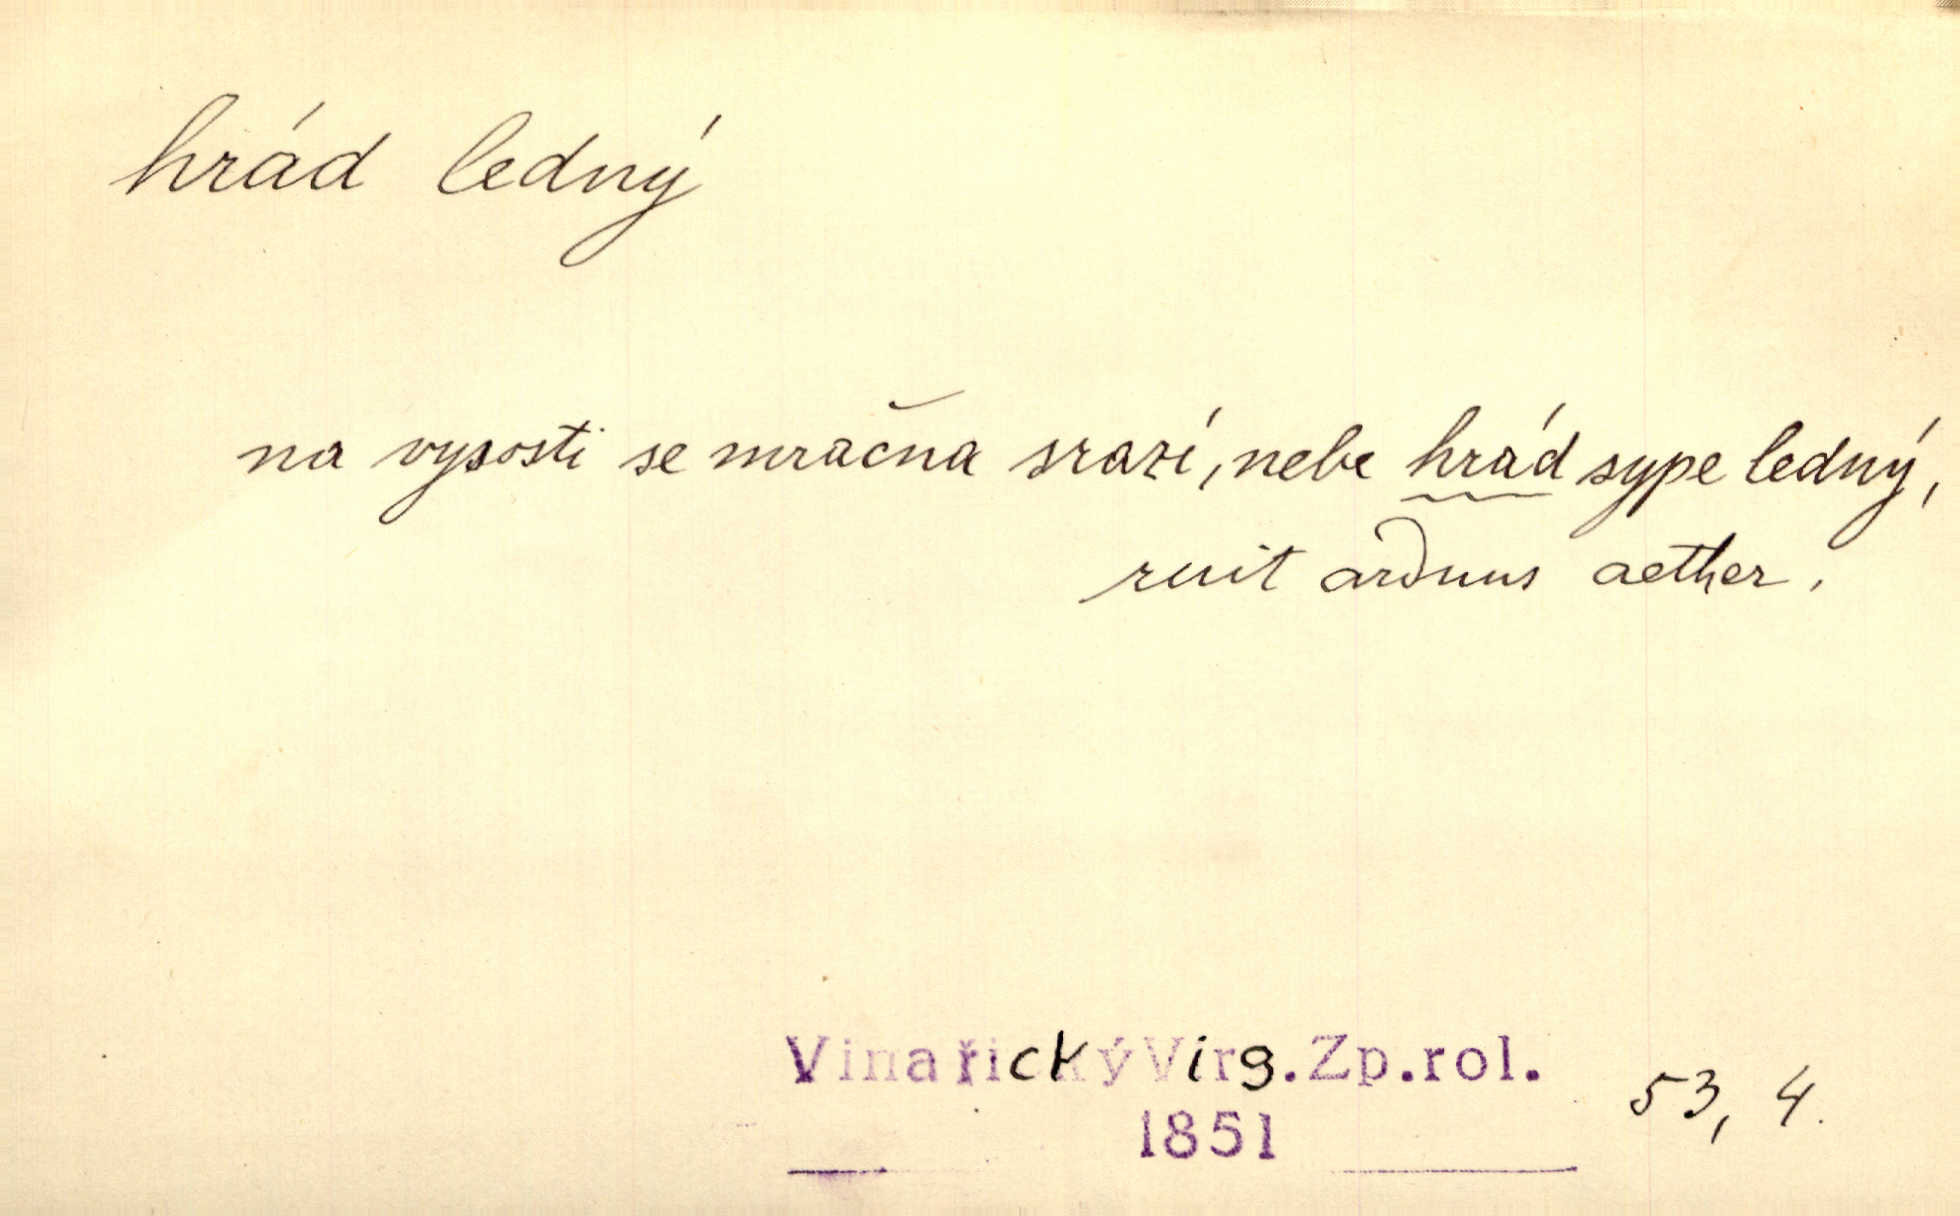 hrád ledný
na vysosti se mračna srazí, nebe hrád sype ledný,
ruit arduus aether.
Vinařický Virg. Zp. rol.
53, 4.
1851